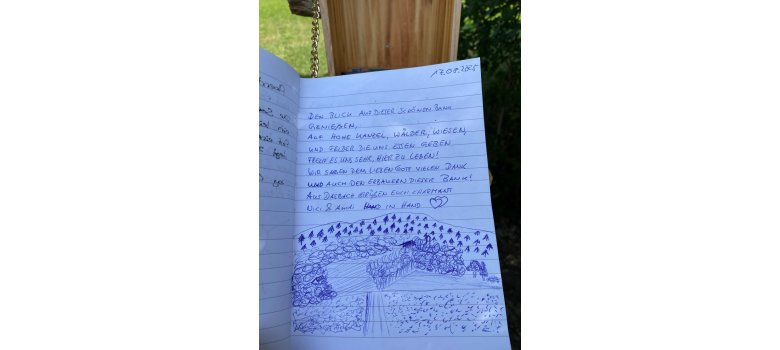 17.08.2025
DEN BLICK AUF DIESER SCHÖNEN BANK
GENIEßEN,
AUF HOHE KANZEL, WÄLDER, WIESEN,
UND FELDER DIE UNS ESSEN GEBEN
FREUT ES UNS SEHR, HIER ZU LEBEN!
WIR SAGEN DEM LIEBEN GOTT VIELEN DANK
UND AUCH DEN ERBAUERN DIESER BANK!
AUS DASBACH GRÜßEN EUCH CHARMANT
NICI & ANDI HAND IN HAND